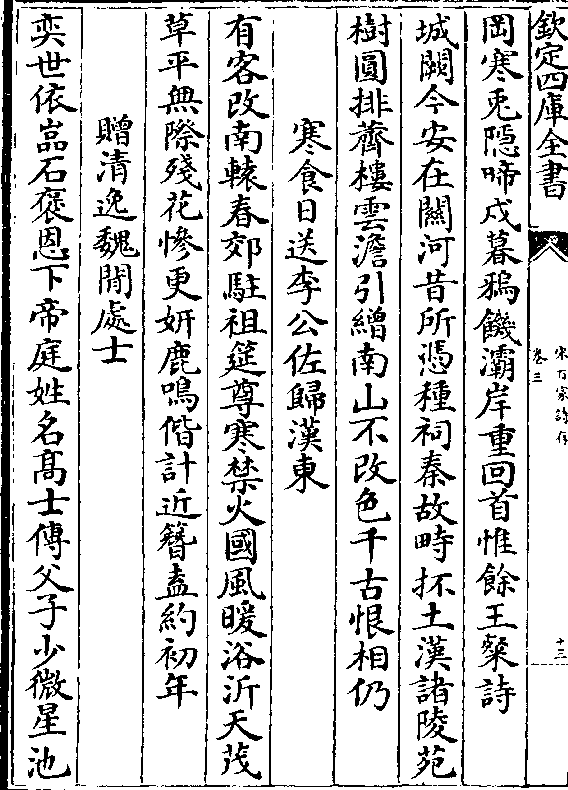 欽定四庫全書
宋百家詩存
卷三
十三
岡寒兎隠啼戍暮鴉饑灞岸重回首惟餘王粲詩
城闕今安在關河昔所憑種祠秦故畤抔土漢諸陵苑
樹圓排薺樓雲澹引繒南山不改色千古恨相仍
寒食日送李公佐歸漢東
有客改南轅春郊駐祖筵尊寒禁火國風暖浴沂天茂
草平無際殘花慘更妍鹿鳴偕計近簪盍約初年
贈清逸魏閒處士
奕世依嵓石褒恩下帝庭姓名髙士傳父子少微星池